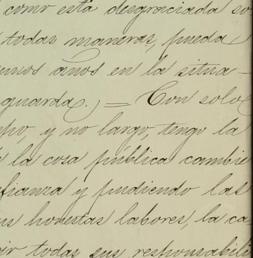 como está desgraciada so
todas maneras, pueda
emos años en la situa-
guarda.) = Con solo
po, y no largo, tengo la
la cosa pública cambie
fianza y pudiendo las
us honestas labores, la ca
ir todas sus responsabili